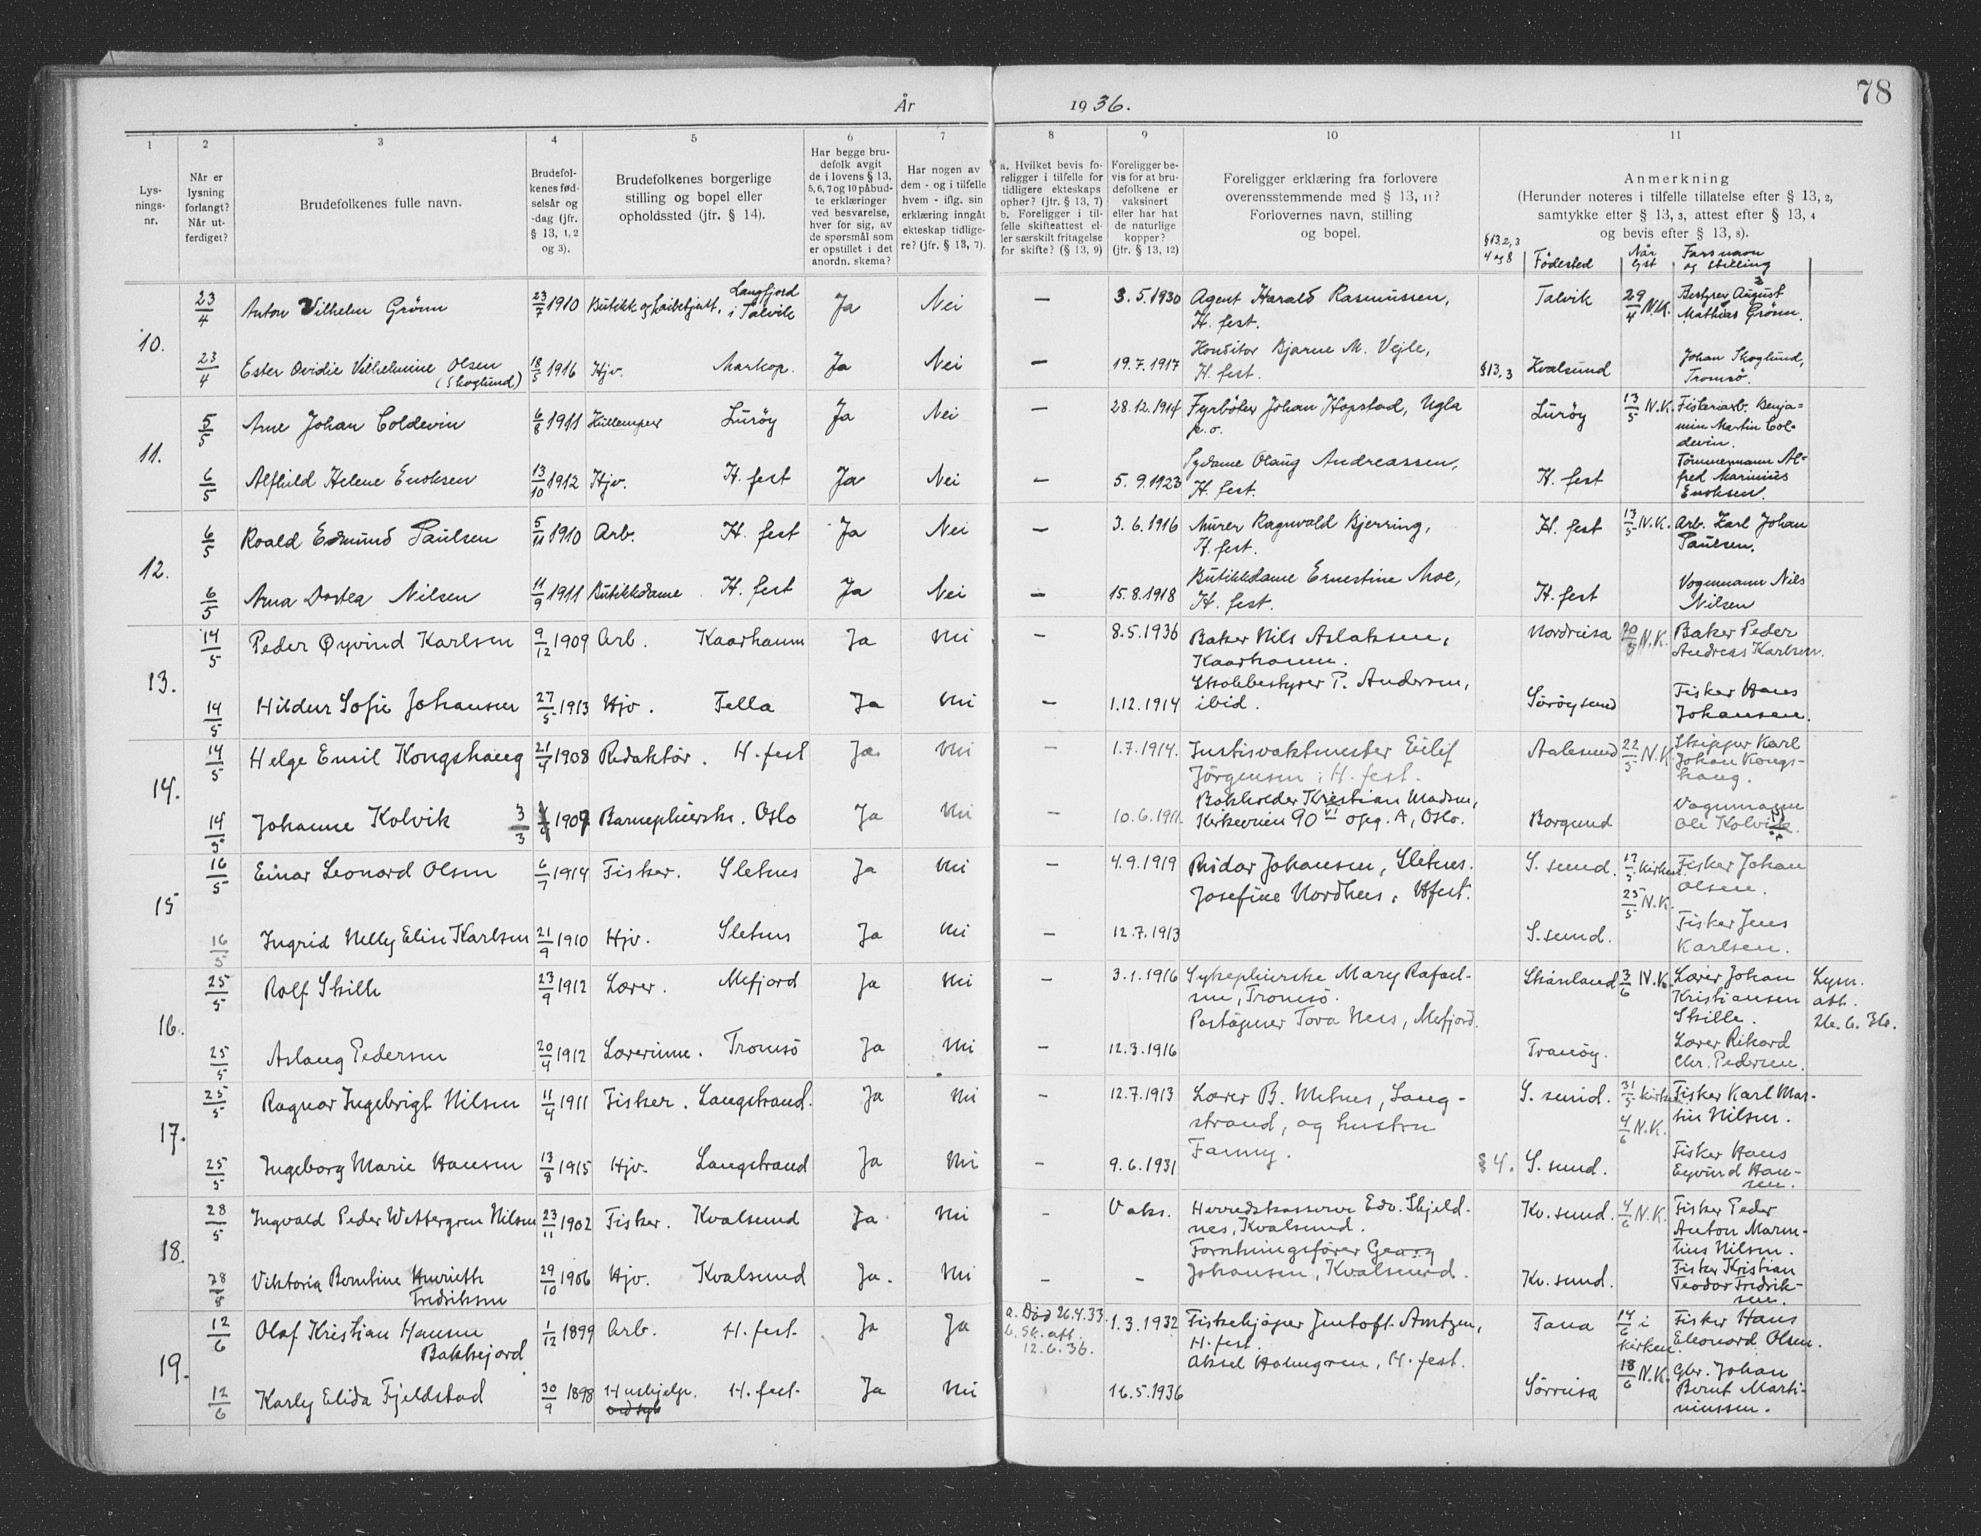 78
År 1936.
1 2 3 4 5 6 7 8 9 10 11
Lysningsnr.
Når er lysning forlangt? Når utferdiget?
Brudefolkenes fulle navn.
Brudefolkenes fødselsår og -dag (jfr. § 13, 1, 2 og 3).
Brudefolkenes borgerlige stilling og bopel eller opholdssted (jfr. § 14).
Har begge brudefolk avgit de i lovens § 13, 5, 6, 7 og 10 påbudte erklæringer ved besvarelse, hver for sig, av de spørsmål som er opstillet i det anordn. skema?
Har nogen av dem - og i tilfelle hvem - iflg. sin erklæring inngått ekteskap tidligere? (jfr. § 13, 7).
a. Hvilket bevis foreligger i tilfelle for tidligere ekteskaps ophør? (jfr. § 13, 7) b. Foreligger i tilfelle skifteattest eller særskilt fritagelse for skifte? (§ 13, 9)
Foreligger bevis for at brudefolkene er vaksinert eller har hat de naturlige kopper? (jfr. § 13, 12)
Foreligger erklæring fra forlovere overensstemmende med § 13, 11? Forlovernes navn, stilling og bopel.
Anmerkning (Herunder noteres i tilfelle tillatelse efter § 13, 2, samtykke efter § 13, 3, attest efter § 13, 4 og bevis efter § 13, 8).
§ 13. 2, 3 4 og 8 Fødested Når lyst Fars navn og stilling
10.
23/4 Anton Vilhelm Grönn 23/7 1910 Butikk og Langfjord i Talvik Ja Nei — 3.5.1930 Agent Harald Rasmussen, H. fest. Talvik 29/4 N.K. Bestyrer August Mathias Grönn.
23/4 Ester Ovidie Vilhelmine Olsen (Skoglund) 18/5 1916 Hjv. Markop. Ja Nei — 19.7.1917 Konditor Bjarne M. Vejle, H. fest. §13, 3 Kvalsund Johan Skoglund, Tromsö.
11.
5/5 Arne Johan Coldevin 6/8 1911 Kullemper Luröy Ja Nei — 28.12.1914 Fyrböter Johan Hopstad, Ugla p.o. Luröy 13/5 N.K. Fiskeriarb. Benjamin Martin Coldevin.
6/5 Alfhild Helene Enoksen 13/10 1912 Hjv. H. fest Ja Nei — 5.9.1923 Sydame Olaug Andreassen, H. fest. H. fest Tömmermann Alfred Marinius Enoksen.
12.
6/5 Roald Edmund Paulsen 5/11 1910 Arb. H. fest Ja Nei — 3.6.1916 Murer Ragnvald Bjerring, H. fest. H. fest 13/5 N.K. Arb. Karl Johan Paulsen.
6/5 Anna Dortea Nilsen 11/9 1911 Butikkdame H. fest Ja Nei — 15.8.1918 Butikkdame Ernestine Moe, H. fest. H. fest Vognmann Nils Nilsen
13.
14/5 Peder Øyvind Karlsen 9/12 1909 Arb. Kaarhamn Ja Nei — 8.5.1936 Baker Nils Aslaksen, Kaarhamn. Nordreisa 20/5 N.K. Baker Peder Andreas Karlsen.
14/5 Hildur Sofie Johansen 27/5 1913 Hjv. Fella Ja Nei — 1.12.1914 Skolebestyrer P. Andersen, ibid. Sörøysund Fisker Hans Johansen.
14.
14/5 Helge Emil Kongshaug 21/4 1908 Redaktör. H. fest Ja. Nei — 1.7.1914. Justisvaktmester Eilif Jörgensen, H. fest. Aalesund 22/5 N.K. Skipper Karl Johan Kongshaug.
14/5 Johanne Kolvik 3/3 1909 Barnepleierske. Oslo Ja Nei — 10.6.1911. Bokholder Kristian Madsen, Kirkeveien 90 VI opg. A, Oslo. Borgund Vognmann Ole Kolvik.
15
16/5 Einar Leonard Olsen 6/7 1914 Fisker. Sletnes Ja Nei — 4.9.1919 Reidar Johansen, Sletnes. Josefine Nordhus, Hfest. S. sund. 17/5 Kirken. 25/5 N.K. Fisker Johan Olsen.
16/5 Ingrid Nelly Elise Karlsen 21/9 1910 Hjv. Sletnes Ja Nei — 12.7.1913 S. sund. Fisker Jens Karlsen.
16.
25/5 Rolf Skille 23/9 1912 Lærer. Mefjord Ja Nei — 3.1.1916 Sykepleierske Mary Rafaelsen, Tromsö. Poståpner Tora Ness, Mefjord. Skånland 3/6 N.K. Lærer Johan Kristiansen Skille. Lysn. att. 26.6.36.
25/5 Aslaug Pedersen 20/4 1912 Lærerinne. Tromsö Ja Nei — 12.3.1916 Tranöy. Lærer Rikard Chr. Pedersen.
17.
25/5 Ragnar Ingebrigt Nilsen 11/4 1911 Fisker. Langstrand. Ja Nei — 12.7.1913 Lærer B. Metnes, Langstrand, og hustru Fanny. S. sund. 31/5 kirken 4/6 N.K. Fisker Karl Martin Nilsen.
25/5 Ingeborg Marie Hansen 13/8 1915 Hjv. Langstrand Ja Nei — 9.6.1931 § 4. S. sund. Fisker Hans Eyvind Hansen.
18.
28/5 Ingvald Peder Wettergren Nilsen 23/11 1902 Fisker. Kvalsund Ja. Nei — Vaks. Herredskasserer Edv. Skjeldnes, Kvalsund. Kv. sund. 4/6 N.K. Fisker Peder Anton Marentius Nilsen.
28/5 Viktoria Berntine Henriette Fredriksen 29/10 1906 Hjv. Kvalsund Ja. Nei — — Forretningsfører Georg Johansen, Kvalsund. Kv. sund. Fisker Kristian Teodor Fredriksen.
19.
12/6 Olaf Kristian Hansen Bakkejord 1/12 1899 Arb. H. fest. Ja Ja a. Død 26.4.33. b. Sk. att. 12.6.36. 1.3.1932 Fiskekjøper Jentoft Arntzen, H. fest. Aksel Holmgren, H. fest. Tana 14/6 i kirken. 18/6 N.K. Fisker Hans Eleonard Olsen.
12/6 Karly Elida Fjeldstad 30/9 1898 Hushjelp. H. fest. Ja Nei 16.5.1936 Sörreisa Gbr. Johan Bernt Martinussen.